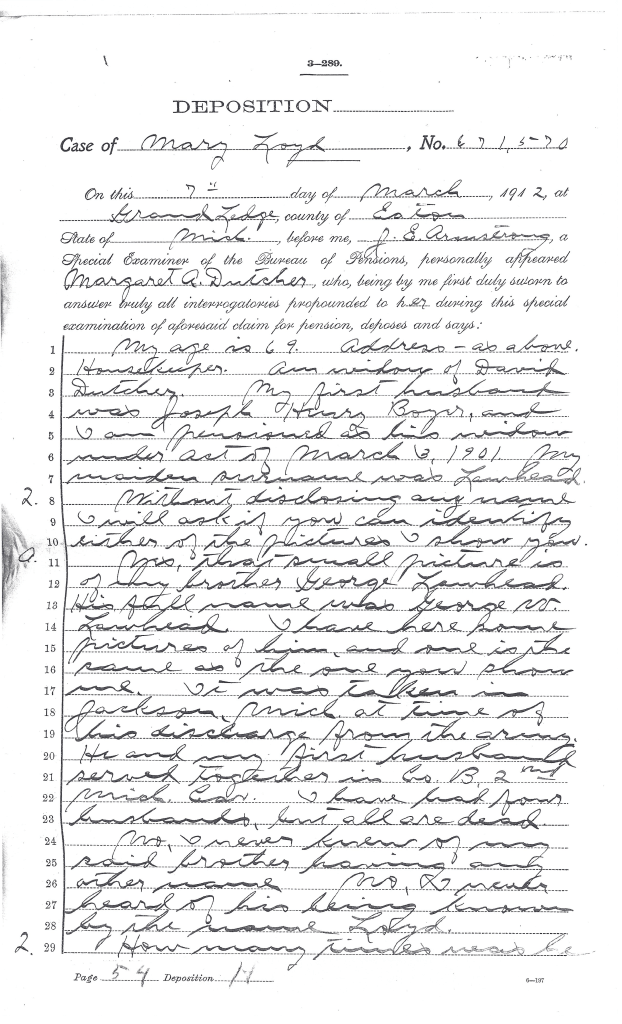 3—289.
DEPOSITION
Case of Mary Loyd, No. 671,570
On this 7" day of March, 1912, at
Grand Ledge, county of Eaton
State of Mich., before me, J. E. Armstrong, a
Special Examiner of the Bureau of Pensions, personally appeared
Margaret A. Dutcher, who, being by me first duly sworn to
answer truly all interrogatories propounded to her during this special
examination of aforesaid claim for pension, deposes and says:
1 My age is 69. Address - as above.
2 Housekeeper. Am widow of David
3 Dutcher. My first husband
4 was Joseph Henry Boyer, and
5 I am pensioned as his widow
6 under act of March 3, 1901. My
7 maiden surname was Lawhead.
2. 8 Without disclosing any name
9 I will ask if you can identify
10 either of the pictures I show you.
a. 11 Yes, that small picture is
12 of my brother George Lawhead.
13 His full name was George W.
14 Lawhead. I have here some
15 pictures of him, and one is the
16 same as the one you show
17 me. It was taken in
18 Jackson, Mich at time of
19 his discharge from the army.
20 He and my first husband
21 served together in Co. B. 2nd
22 Mich. Cav. I have had four
23 husbands, but all are dead.
24 No, I never knew of my
25 said brother having any
26 other name No, I never
27 heard of his being known
28 by the name Loyd.
2. 29 How many times was he
Page 54 Deposition 14
6—197